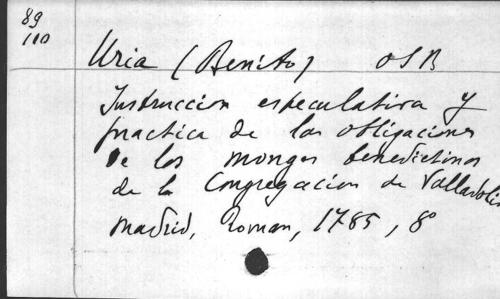 89
110
Uria (Benito) OSB
Instruccion especulativa y
practica de las obligaciones
de los monges benedictinos
de la Congregacion de Valladolid
Madrid, Roman, 1785, 8º